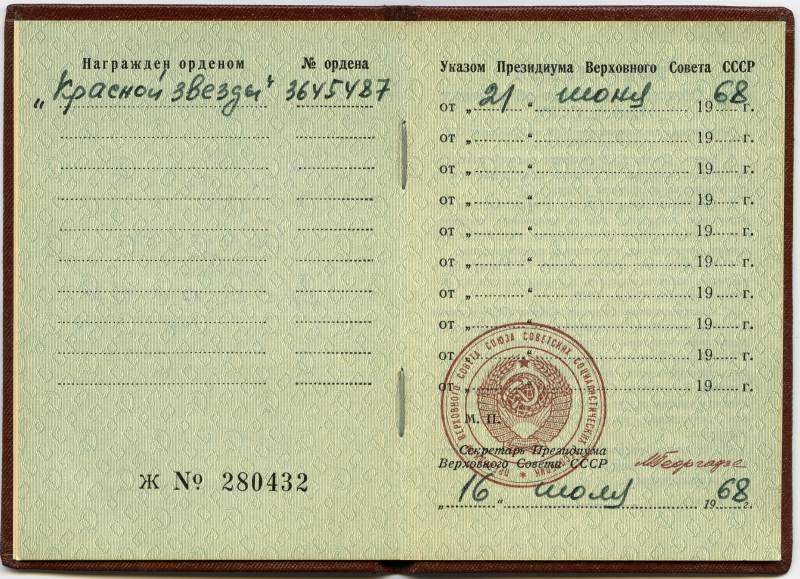 Награжден орденом № ордена
„Красной звезды" 3645487
Ж № 280432
Указом Президиума Верховного Совета СССР
от „ 21 " июня 1968 г.
от „ " 19 г.
от „ " 19 г.
от „ " 19 г.
от „ " 19 г.
от „ " 19 г.
от „ " 19 г.
от „ " 19 г.
от „ " 19 г.
от „ " 19 г.
ВЕРХОВНОГО СОВЕТА СОЮЗА СОВЕТСКИХ СОЦИАЛИСТИЧЕСКИХ
М. П.
Секретарь Президиума
Верховного Совета СССР
МГеоргадзе
„ 16 " июля 1968 г.